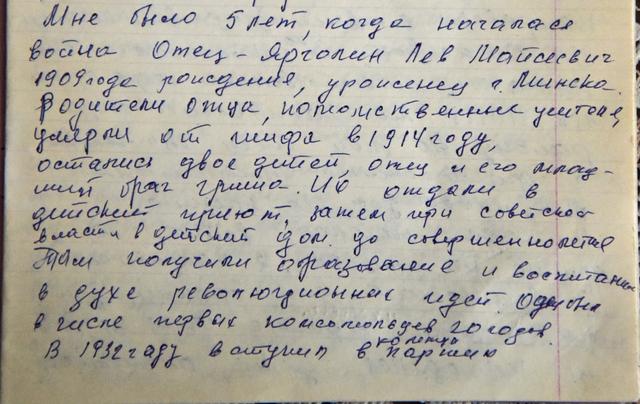 Мне было 5 лет, когда началась
война Отец - Ярголин Лев Мойсеевич
1909 года рождения, уроженец г. Минска.
Родители отца, потомственные учителя,
умерли от тифа в 1914 году,
остались двое детей, отец и его млад-
ший брат Гриша. Их отдали в
детский приют, затем при советской
власти в детский дом. до совершеннолетия
Там получили образование и воспитание
в духе революционных идей. они
в числе первых комсомольцев 20 годов.
В 1932 году вступил в партию